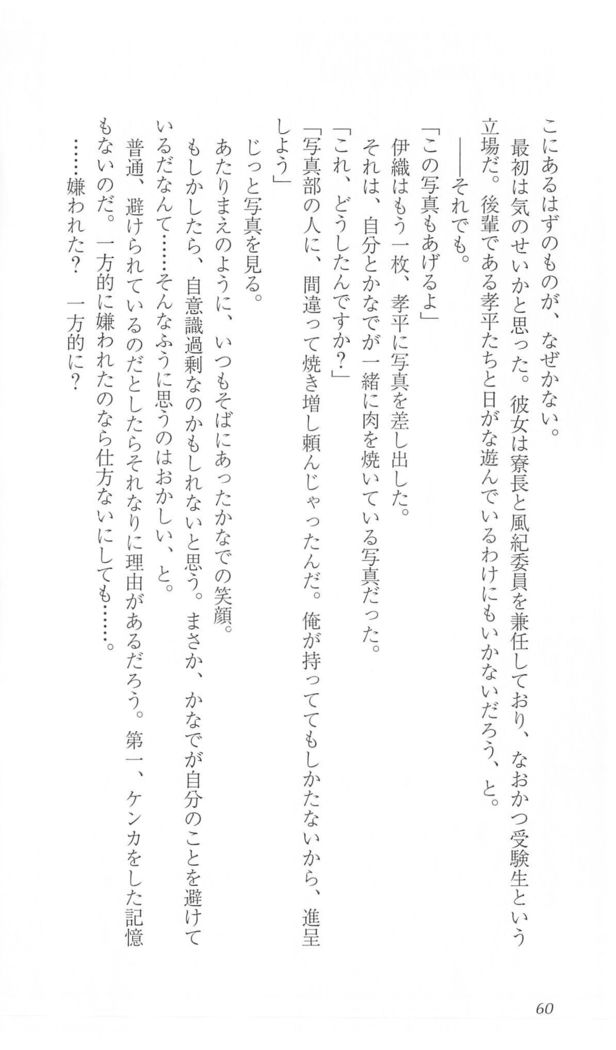 こにあるはずのものが、なぜかない。
　最初は気のせいかと思った。彼女は寮長と風紀委員を兼任しており、なおかつ受験生という
立場だ。後輩である孝平たちと日がな遊んでいるわけにもいかないだろう、と。
　――それでも。
「この写真もあげるよ」
　伊織はもう一枚、孝平に写真を差し出した。
　それは、自分とかなでが一緒に肉を焼いている写真だった。
「これ、どうしたんですか？」
「写真部の人に、間違って焼き増し頼んじゃったんだ。俺が持っててもしかたないから、進呈
しよう」
　じっと写真を見る。
　あたりまえのように、いつもそばにあったかなでの笑顔。
　もしかしたら、自意識過剰なのかもしれないと思う。まさか、かなでが自分のことを避けて
いるだなんて……そんなふうに思うのはおかしい、と。
　普通、避けられているのだとしたらそれなりに理由があるだろう。第一、ケンカをした記憶
もないのだ。一方的に嫌われたのなら仕方ないにしても……。
　……嫌われた？　一方的に？
60